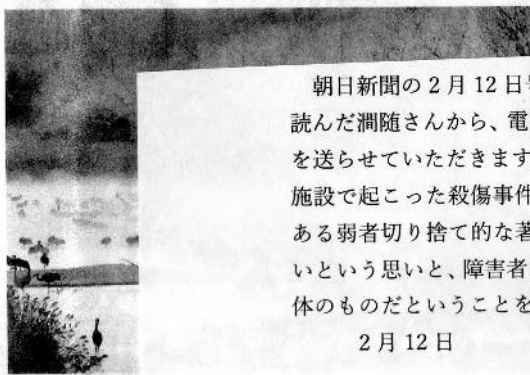 朝日新聞の2月12日
読んだ潤随さんから、電
を送らせていただきます
施設で起こった殺傷事件
ある弱者切り捨て的な著
いという思いと、障害者
体のものだということを
2月12日